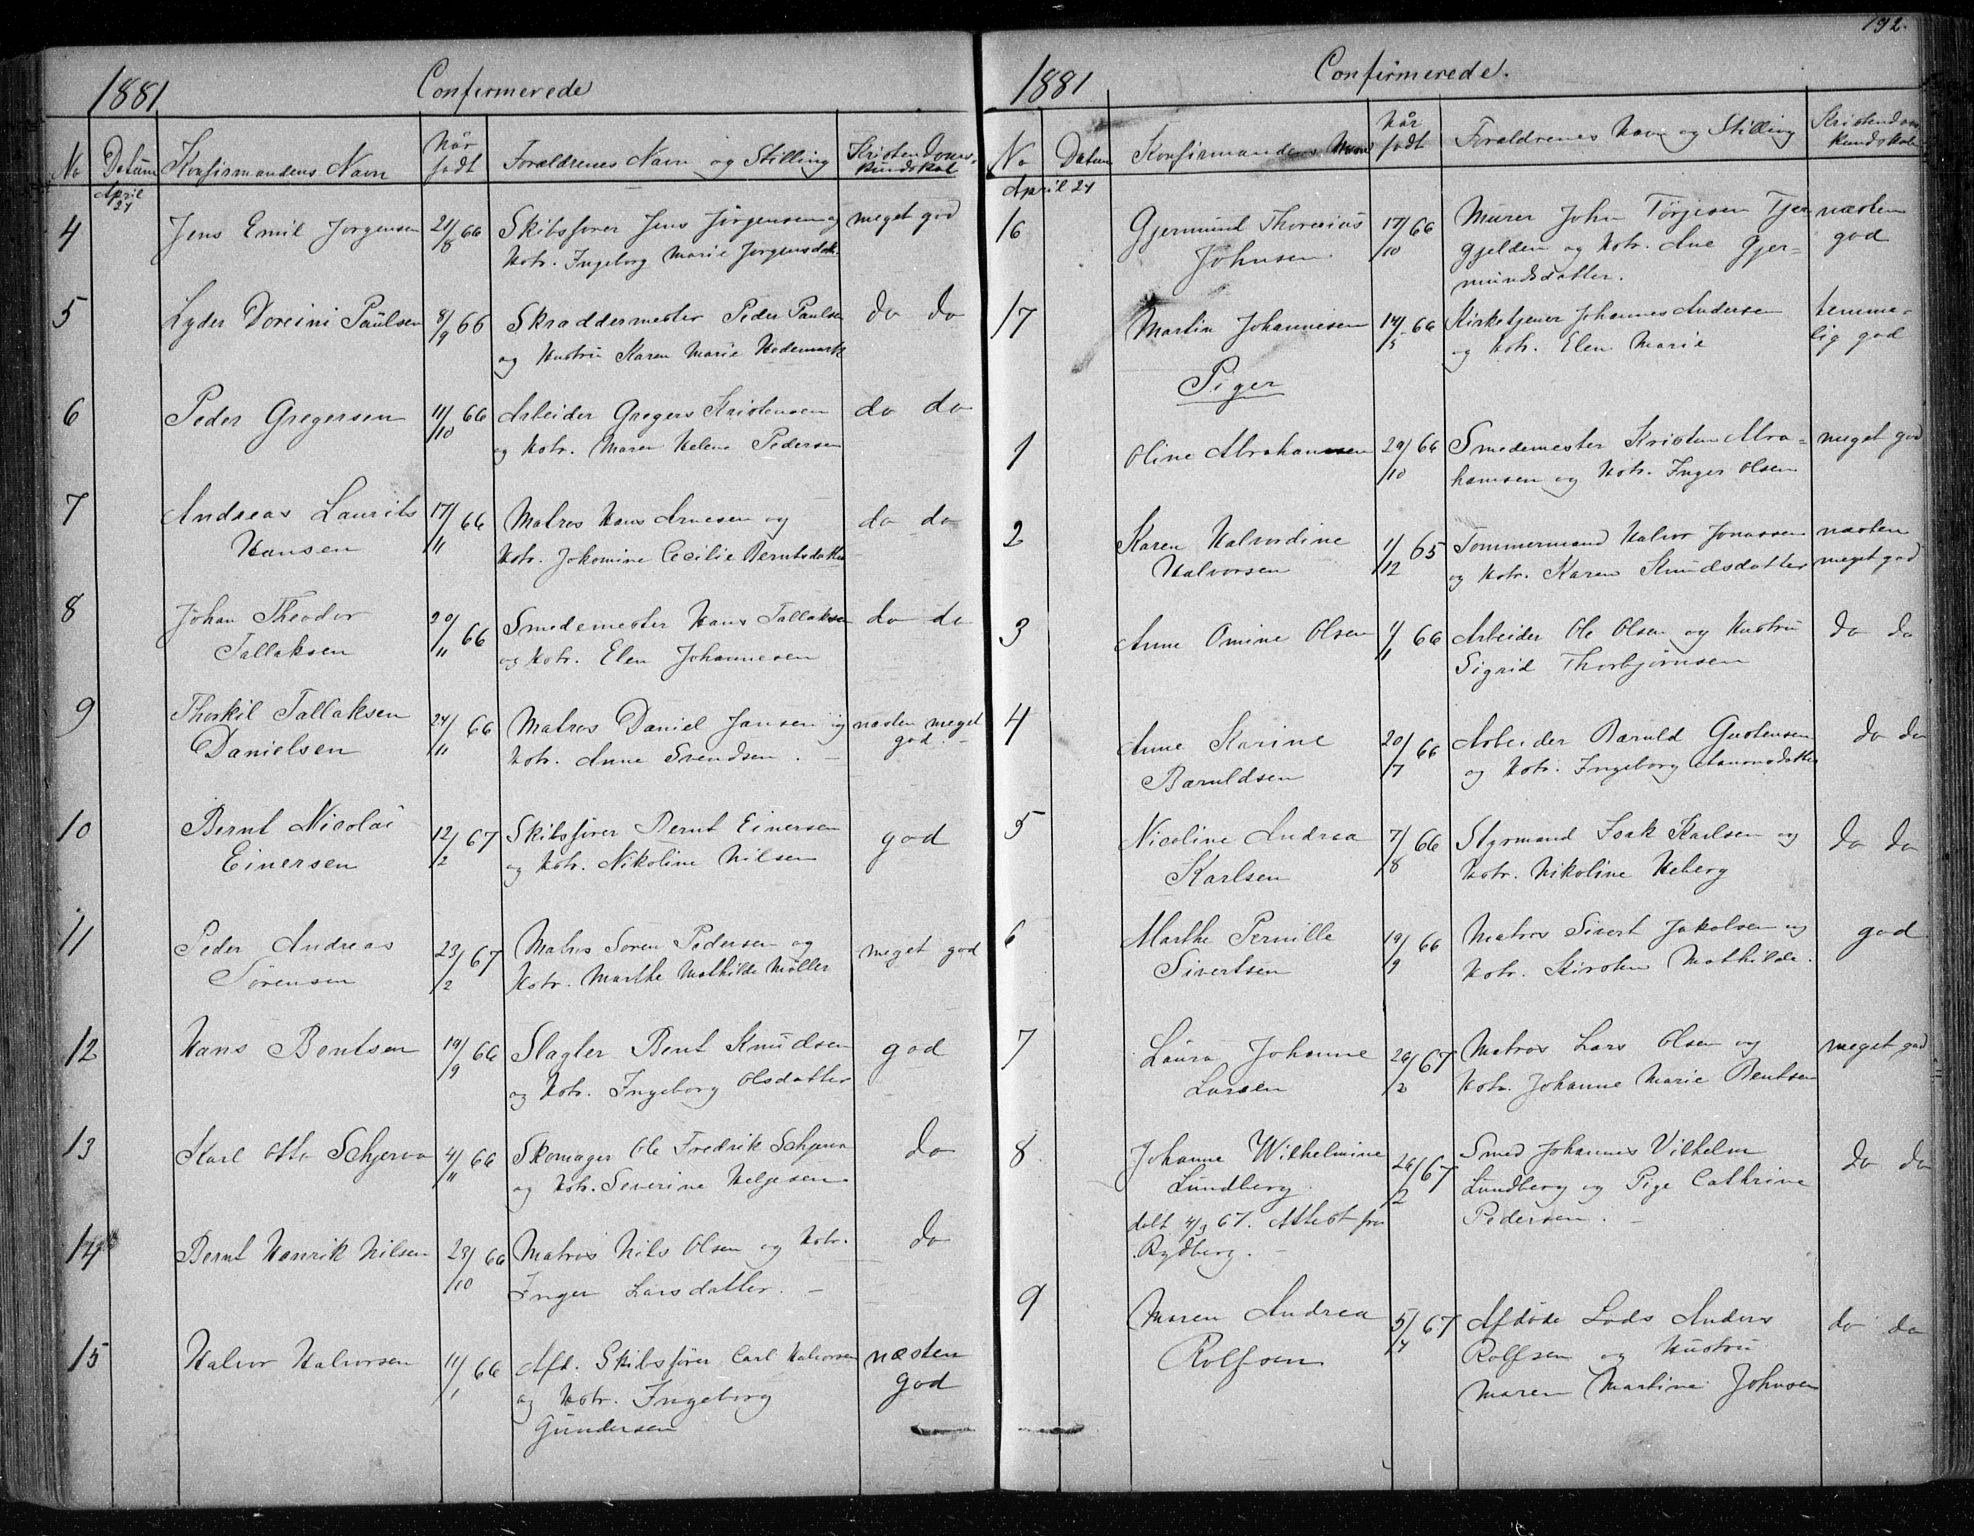 1881 Confirmerede
No Datum Konfirmandens Navn Når født Forældrenes Navn og Stilling Kristendoms-kundskab
April 24
4 Jens Emil Jorgensen 21/8 66 Skibsfører Jens Jørgensen og meget god
Hstr. Ingeborg Marie Jørgensdatr.
5 Lyder Doreini Paulsen 8/9 66 Skræddermester Peder Paulsen do do
og Hustru Karen Marie Hedemark
6 Peder Gregersen 11/10 66 Arbeider Gregers Kristensen do do
og Hstr. Maren Helene Pedersen
7 Andreas Laurits 17/11 66 Matros Hans Arnesen og do do
Hansen Hstr. Jokomine Cecilie Berntsdatter
8 Johan Theodor 20/11 66 Smedemester Hans Tallaksen do do
Tallaksen og Hstr. Elen Johannesen
9 Thorkil Tallaksen 24/11 66 Matros Daniel Jansen og næsten meget
Danielsen Hstr. Anne Svendsen. god.
10 Bernt Nicolai 12/2 67 Skibsfører Bernt Einersen god
Einersen og Hstr. Nikoline Nilsen
11 Peder Andreas 23/2 67 Matros Søren Pedersen og meget god
Sørensen Hstr. Marthe Mathilde Møller
12 Hans Bentsen 19/9 66 Slagter Bent Knudsen god
og Hstr. Ingeborg Olsdatter
13 Karl Otto Schjerva 4/11 66 Skomager Ole Fredrik Schjerva do
og Hstr. Severine Helgesen
14 Bernt Henrik Nilsen 23/10 66 Matros Nils Olsen og Hstr. do
Inger Larsdatter.
15 Halvor Halvorsen 11/1 66 Afd. Skibsfører Carl Halvorsen næsten
og Hstr. Ingeborg god
Gundersen
192.
1881 Confirmerede.
No Datum Konfirmandens Navn Når født Forældrenes Navn og Stilling Kristendoms kundskab
April 24
16 Gjermund Thorenius 17/10 66 Murer John Tørjesen Tjer- næsten
Johnsen gjelden og Hstr. Ane Gjer- god
mundsdatter.
17 Martin Johannesen 14/5 66 Kirketjener Johannes Andersen temme-
og Hstr. Elen Marie lig god
Piger
1 Oline Abrahamsen 29/10 66 Smedemester Kristen Abra- meget god
hamsen og Hstr. Inger Olsen
2 Karen Halvordine 1/12 65 Tømmermand Halvor Jonassen næsten
Halvorsen og Hstr. Karen Knudsdatter meget god
3 Anne Omine Olsen 1/1 66 Arbeider Ole Olsen og Hustru do do
Sigrid Thorbjørnsen
4 Anne Karine 20/7 66 Arbeider Baruld Gustensen do do
Baruldsen og Hstr. Ingeborg
5 Nicoline Andrea 7/8 66 Styrmand Isak Karlsen og do do
Karlsen Hstr. Nikoline Heberg
6 Marthe Pernille 19/9 66 Matros Sivert Jakobsen og god
Sivertsen Hstr. Kirsten Mathilde.
7 Laura Johanne 26/2 67 Matros Lars Olsen og meget god
Larsen Hstr. Johanne Marie Bentsen
8 Johanne Wilhelmine 26/2 67 Smed Johannes Vilhelm do do
Lundberg. Lundberg og Pige Cathrine
døbt 4/9 67. Attest fra Pedersen.
Rydberg.
9 Maren Andrea 5/4 67 Afdøde Lods Anders do do
Rolfsen Rolfsen og Hustru
Maren Martine Johnsen